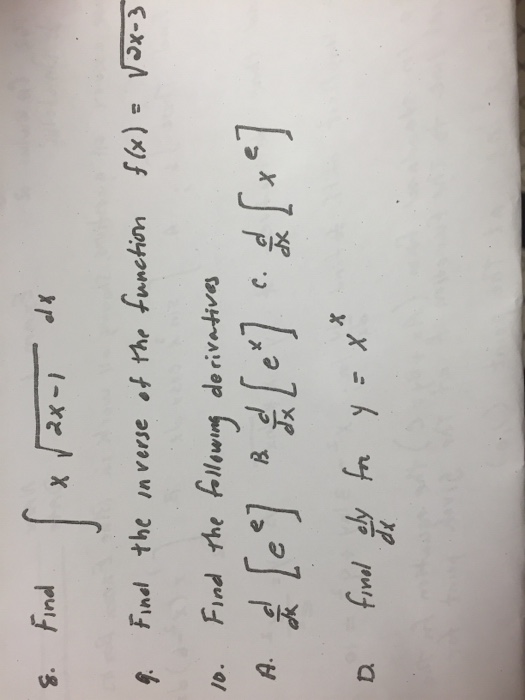 8. Find ∫ x √2x-1 dx
9. Find the inverse of the function f(x) = √2x-3
10. Find the following derivatives
A. d/dx [e^e] B. d/dx [e^x] C. d/dx [x^e]
D. find dy/dx for y = x^x